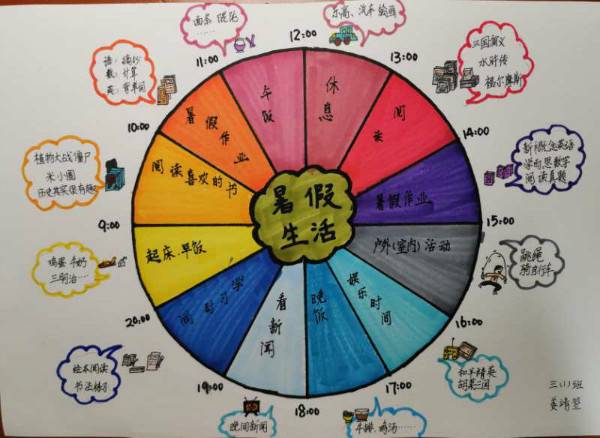 面条 馄饨
乐高、汽车 绘画
12:00
11:00
13:00
语：摘抄
数：计算
英：背单词
三国演义
水浒传
福尔摩斯
午饭
休息
暑假作业
阅读
10:00
14:00
植物大战僵尸
米小圈
历史其实很有趣
阅读喜欢的书
暑假作业
新概念英语
学而思数学
阅读真题
暑假
生活
9:00
15:00
鸡蛋 牛奶
三明治……
起床.早饭
户外(室内)活动
跳绳
骑自行车
学习时间
看新闻
晚饭
娱乐时间
20:00
16:00
绘本阅读
书法练习
和平精英
胡莱三国
19:00
17:00
18:00
晚间新闻
牛排、鸡汤……
三(1)班